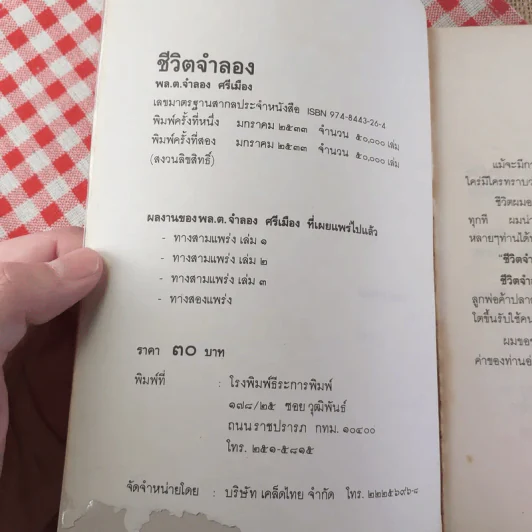 ชีวิตจำลอง
พล.ต.จำลอง ศรีเมือง
เลขมาตรฐานสากลประจำหนังสือ ISBN 974-8443-26-4
พิมพ์ครั้งที่หนึ่ง มกราคม ๒๕๓๓ จำนวน ๕๐,๐๐๐ เล่ม
พิมพ์ครั้งที่สอง มกราคม ๒๕๓๓ จำนวน ๕๐,๐๐๐ เล่ม
(สงวนลิขสิทธิ์)
ผลงานของพล.ต.จำลอง ศรีเมือง ที่เผยแพร่ไปแล้ว
- ทางสามแพร่ง เล่ม ๑
- ทางสามแพร่ง เล่ม ๒
- ทางสามแพร่ง เล่ม ๓
- ทางสองแพร่ง
ราคา ๓๐ บาท
พิมพ์ที่ : โรงพิมพ์ธีระการพิมพ์
๑๗๘/๒๕ ซอย วุฒิพันธ์
ถนน ราชปรารภ กทม. ๑๐๔๐๐
โทร. ๒๕๑-๕๘๑๕
จัดจำหน่ายโดย : บริษัท เคล็ดไทย จำกัด โทร. ๒๒๒๕๖๙๖-๘
แม้จะมีกา
ใคร่มีใครทราบว
ชีวิตผมอ
ทุกที ผมน่า
หลายๆท่านได้
"ชีวิตจำ
ชีวิตจำล
ลูกพ่อค้าปลา
โตขึ้นรับใช้คน
ผมขอ
ค่าของท่านอ่